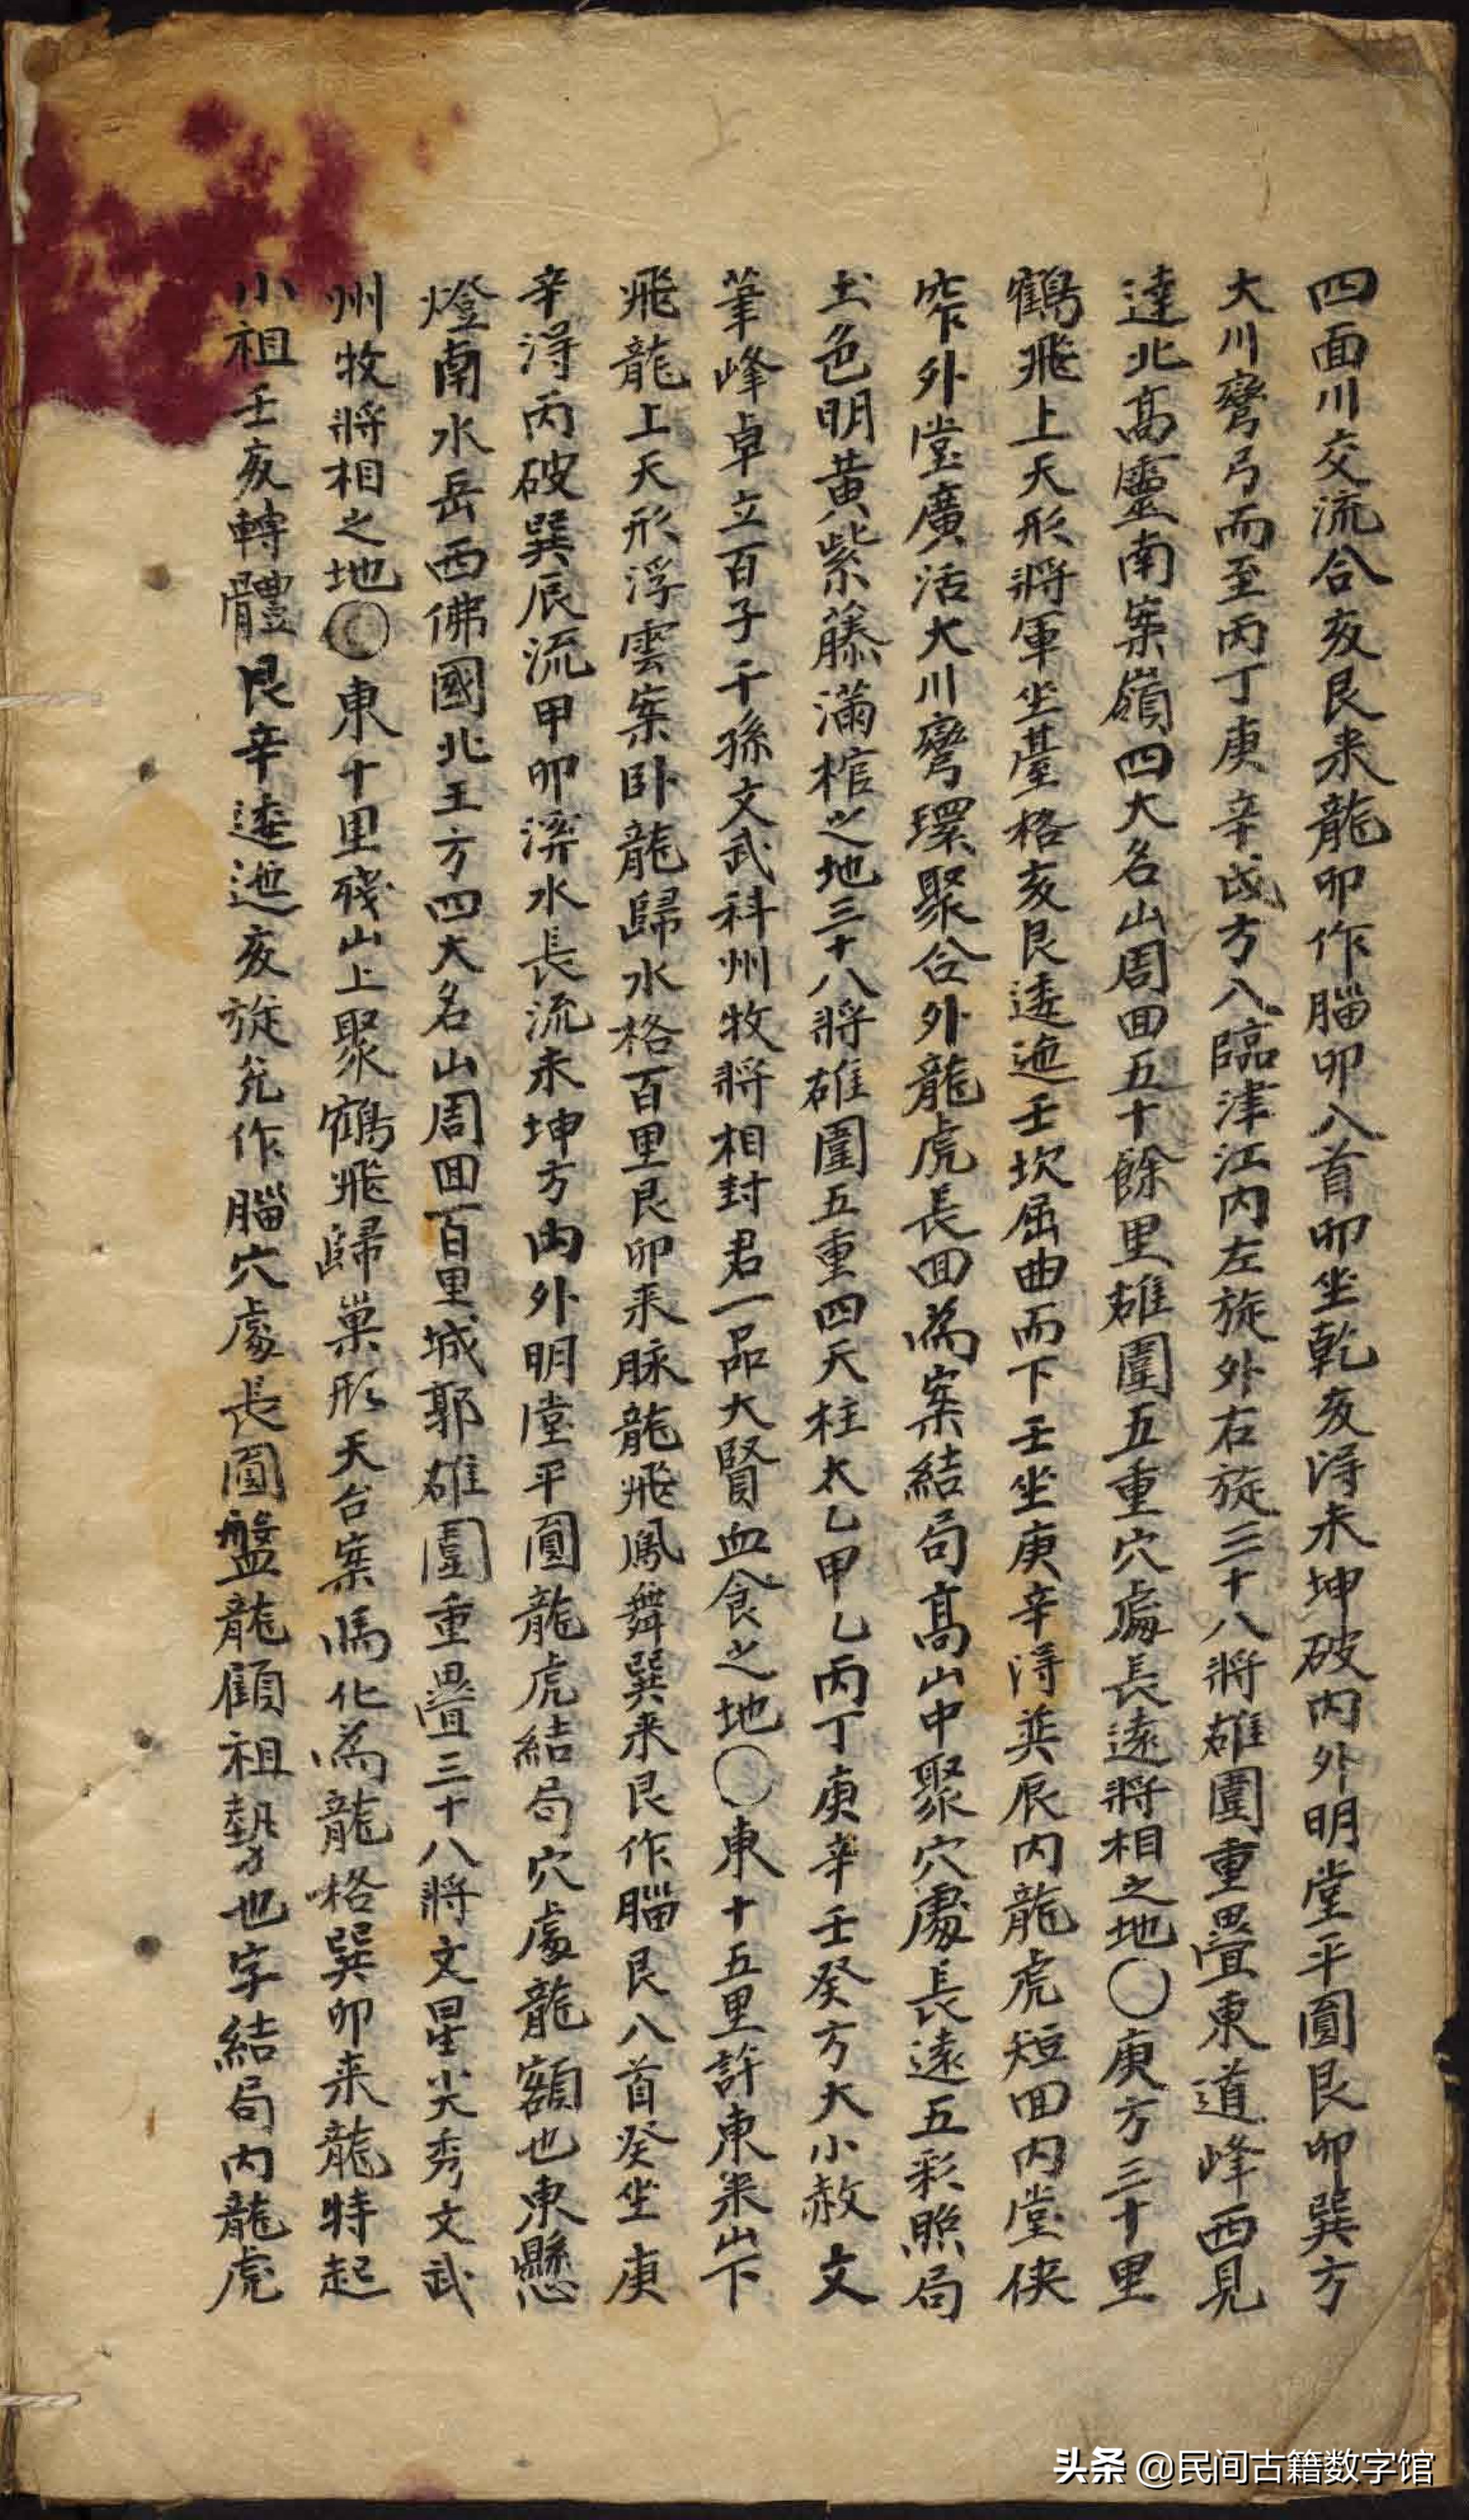 四面川交流合亥艮来龍卯作腦卯入首卯坐乾亥淂未坤破内外明堂平圓艮卯巽方
大川彎弓而至丙丁庚辛戌方入臨津江内左旋外右旋三十八將雄圍重疊東道峰西見
達北高靈南案嶺四大名山周回五十餘里雄圍五重穴處長遠將相之地○庚方三十里
鶴飛上天形將軍坐臺格亥艮逶迤壬坎屈曲而下壬坐庚辛淂巽辰内龍虎短回内堂俠
窄外堂廣活大川彎環聚合外龍虎長回為案結局高山中聚穴處長遠五彩照局
土色明黃紫藤滿棺之地三十八將雄圍五重四天柱太乙甲乙丙丁庚辛壬癸方大小赦文
筆峰卓立百子千孫文武科州牧將相封君一品大賢血食之地○東十五里許東案山下
飛龍上天形浮雲案卧龍歸水格百里艮卯来脉龍飛鳳舞巽来艮作腦艮入首癸坐庚
辛淂丙破巽辰流甲卯淂水長流未坤方内外明堂平圓龍虎結局穴處龍額也東懸
燈南水岳西佛國北王方四大名山周回百里城郭雄圍重疊三十八將文星尖秀文武
州牧將相之地○東十里殘山上聚鶴飛歸巢形天台案馬化為龍格巽卯来龍特起
小祖壬亥轉體艮辛逶迤亥旋兊作腦穴處長圓盤龍顧祖勢也字結局内龍虎
头条 @民间古籍数字馆